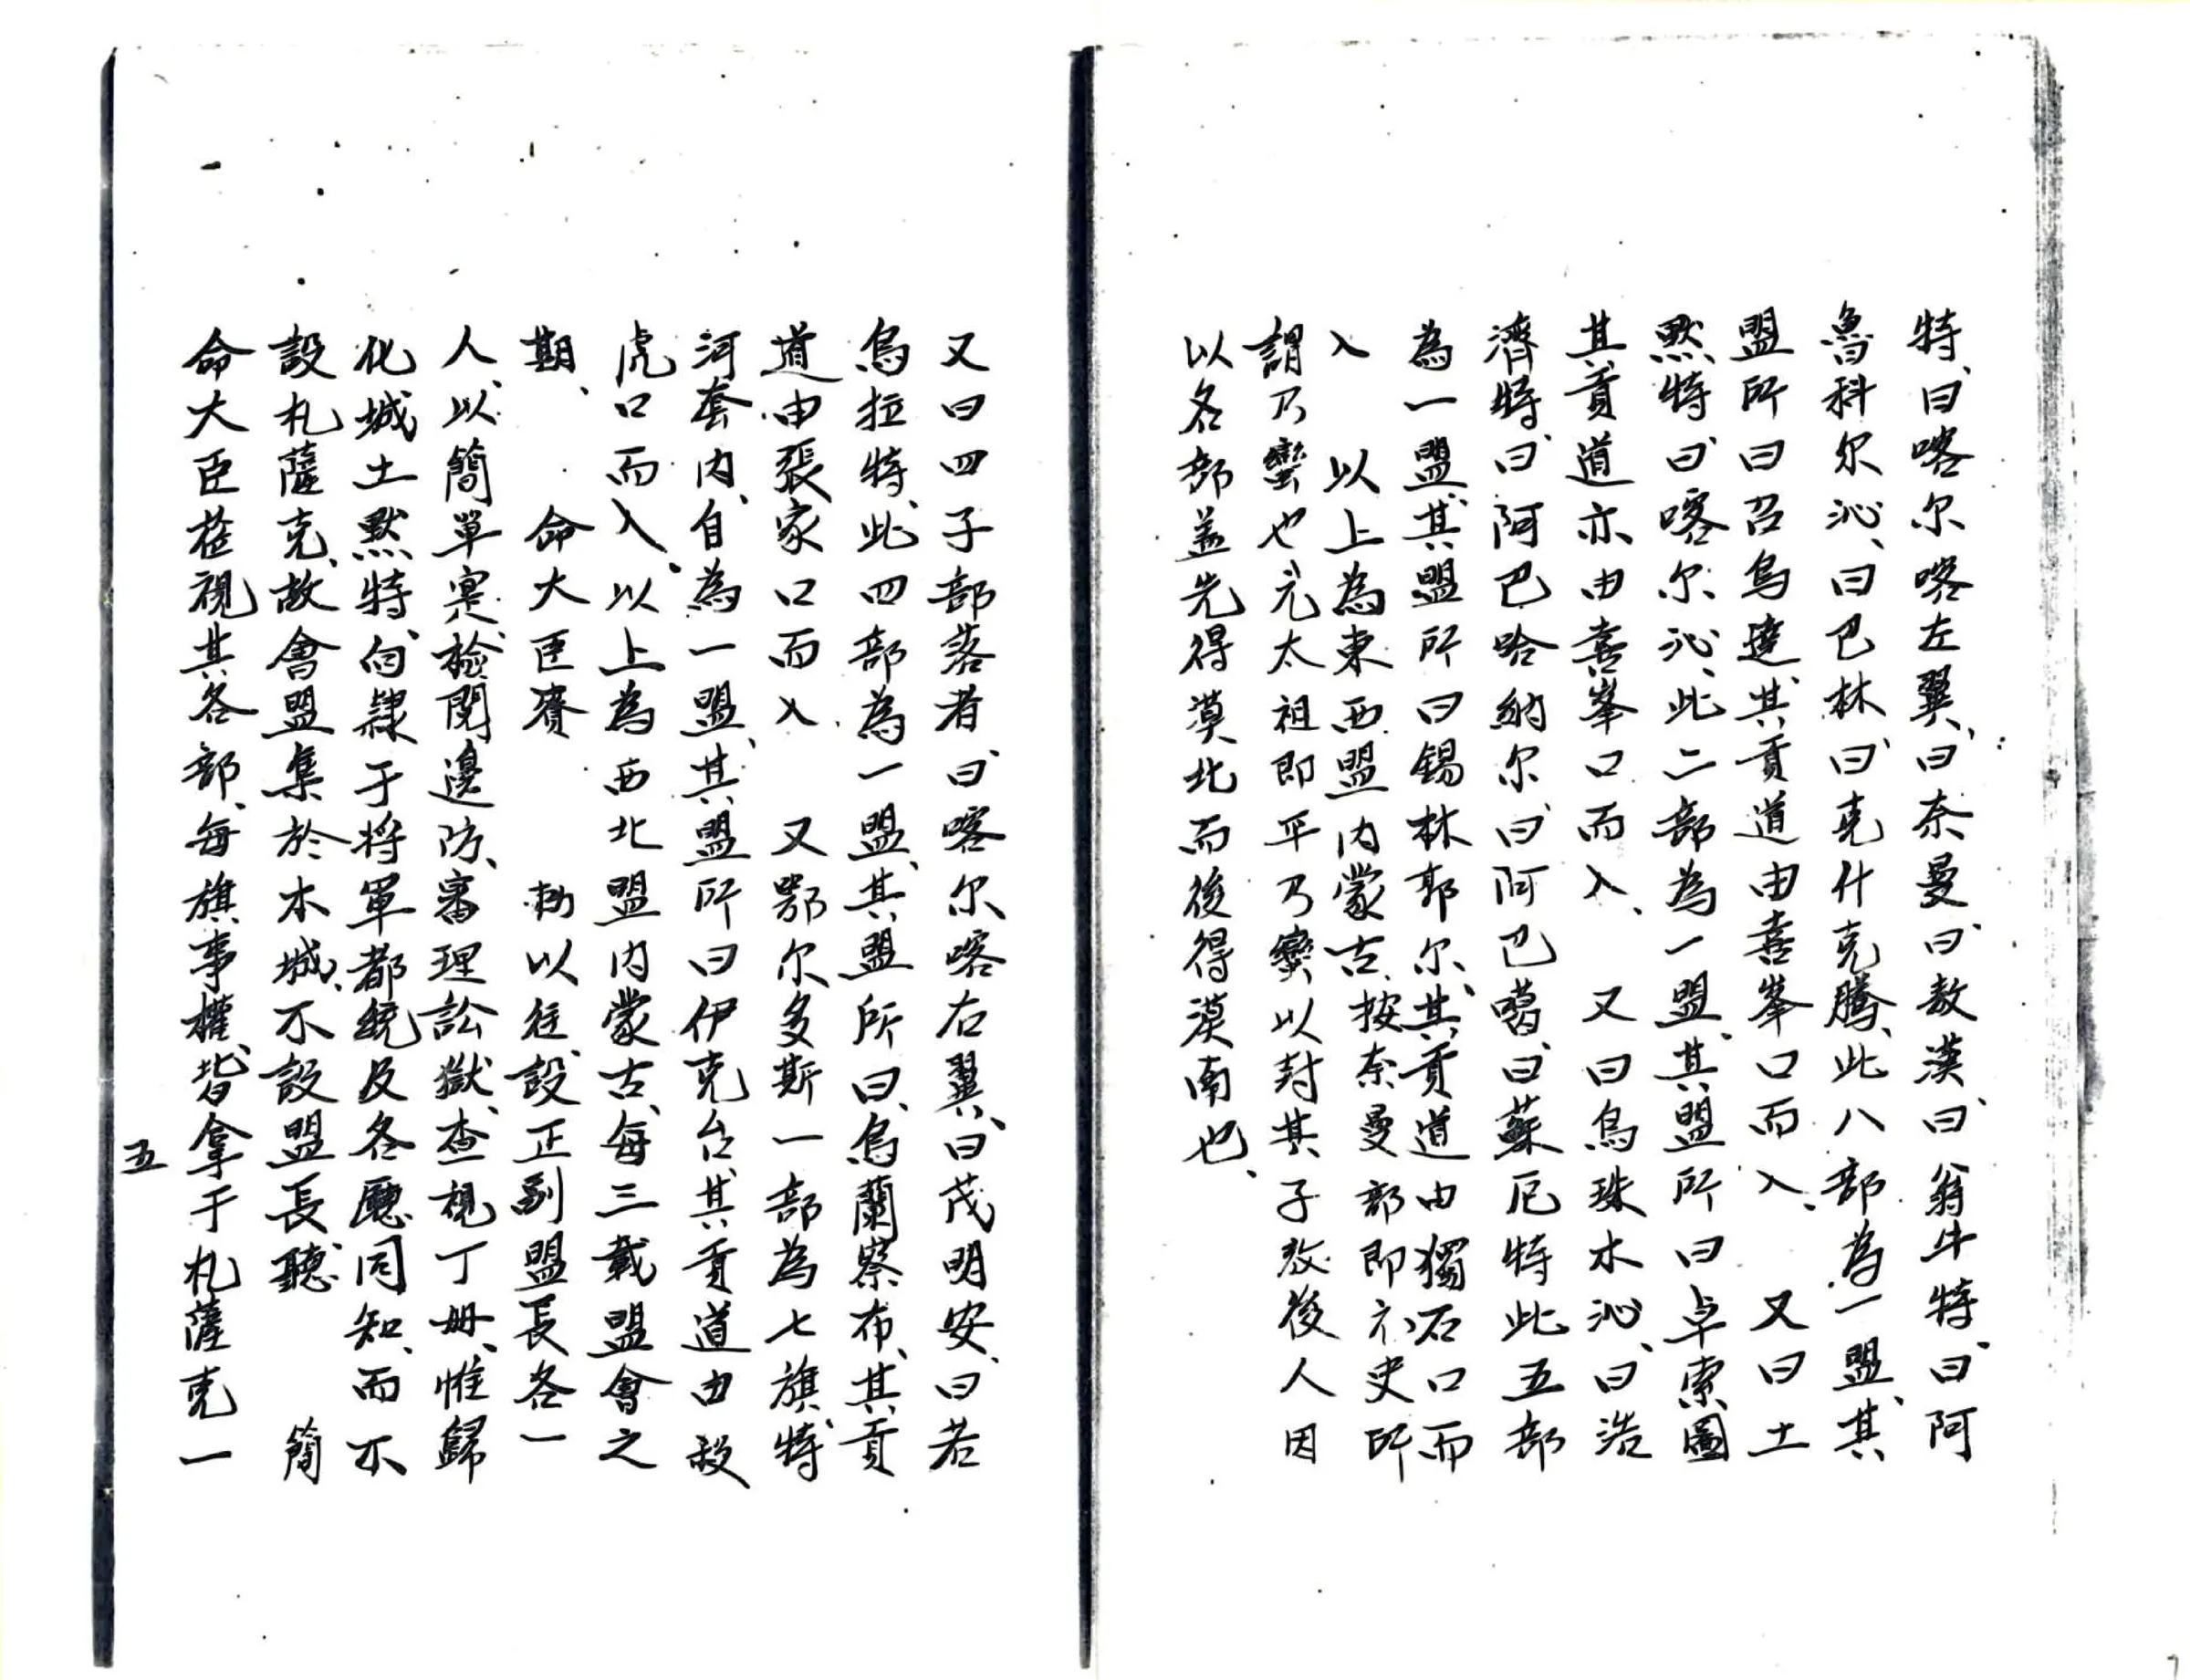 特、曰喀尔喀左翼、曰奈曼、曰敖漢、曰翁牛特、曰阿
魯科尔沁、曰巴林、曰克什克騰、此八部為一盟、其
盟所曰召烏達、其貢道由喜峯口而入、又曰土
默特、曰喀尔沁、此二部為一盟、其盟所曰卓索圖
其貢道亦由喜峯口而入、又曰烏珠木沁、曰浩
濟特、曰阿巴哈納尔、曰阿巴噶、曰蘇尼特此五部
為一盟、其盟所曰錫林郭尔、其貢道由獨石口而
入 以上為東西盟內蒙古、按奈曼部即史所
謂乃蠻也、元太祖即平乃蠻以封其子孜後人因
以各部盖先得漠北而後得漠南也、
又曰四子部落者、曰喀尔喀右翼、曰茂明安、曰若
烏拉特、此四部為一盟、其盟所曰、烏蘭察布、其貢
道由張家口而入、又鄂尔多斯一部為七旗、特
河套內、自為一盟、其盟所曰伊克台、其貢道由殺
虎口而入、以上為西北盟內蒙古、每三載盟會之
期、 命大臣賚 勅以往、設正副盟長各一
人、以簡單寔、檢閱邊防、審理訟獄、查視丁册、惟歸
化城土默特、向隸于將軍都統及各廳同知、而不
設札薩克、故會盟集於本城、不設盟長、聽 簡
命大臣莅視其各部、每旗事權、皆拿于札薩克一
五